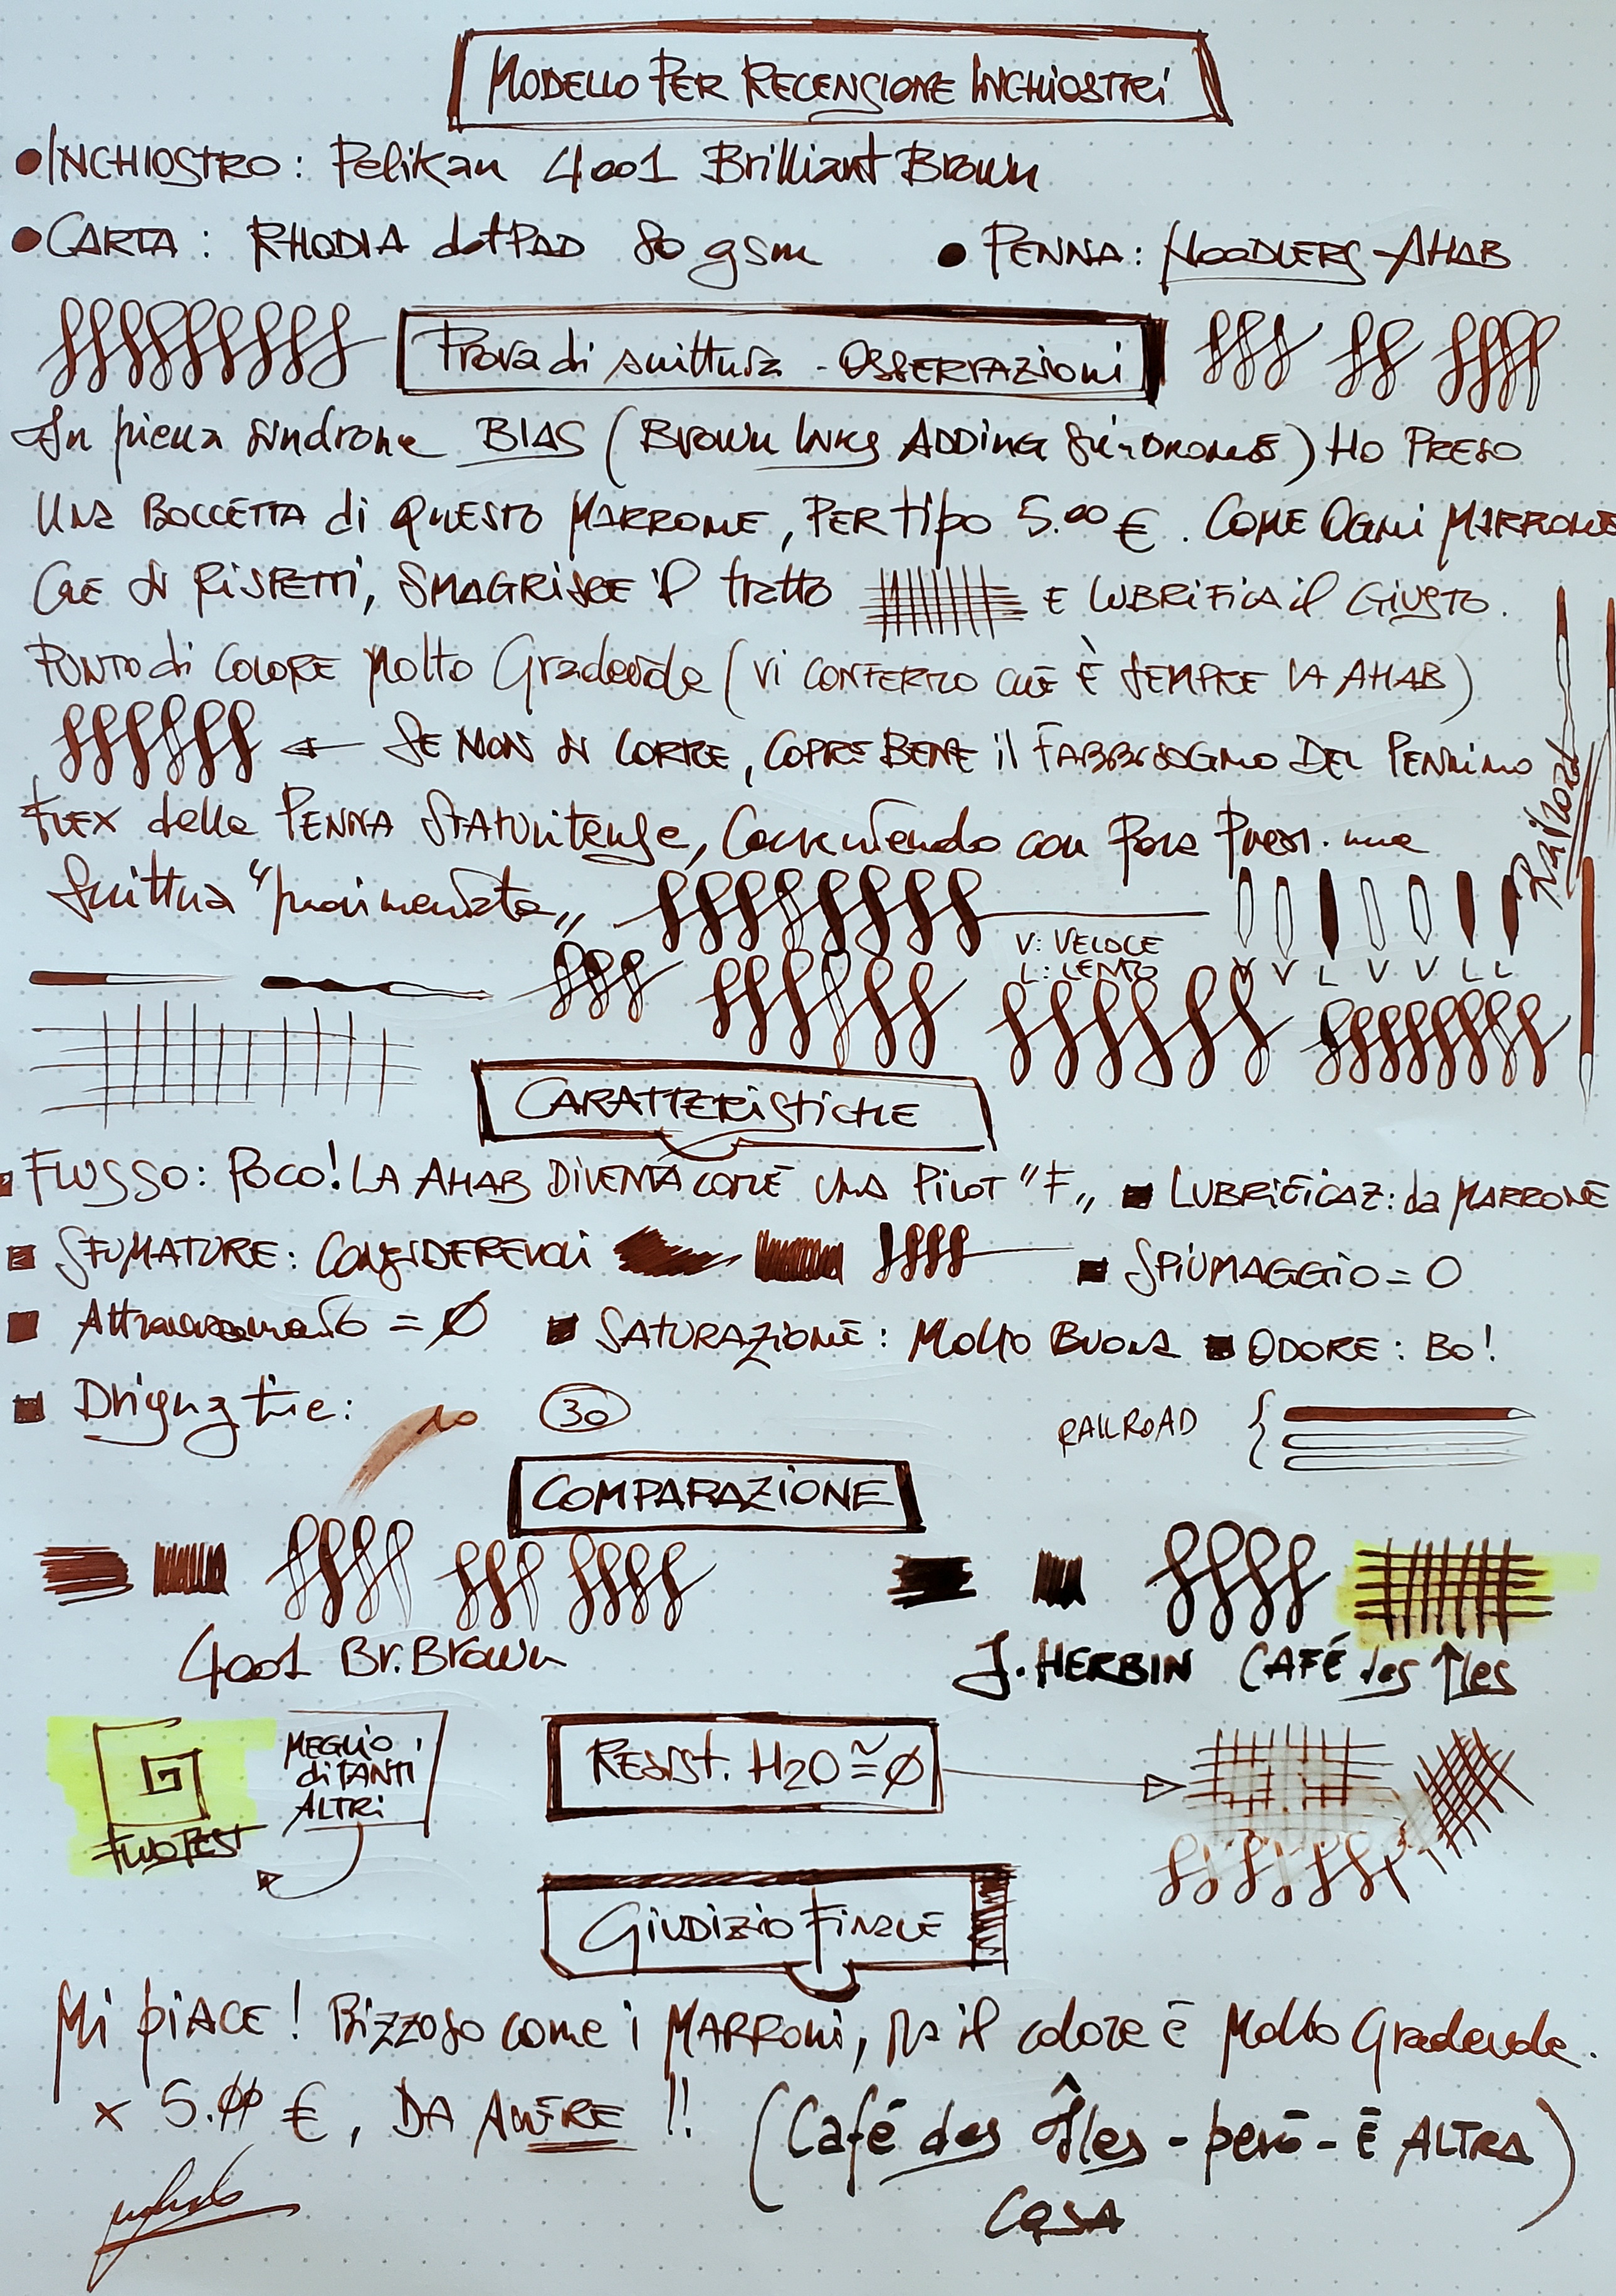 MODELLO PER RECENSIONE INCHIOSTRI
• INCHIOSTRO: Pelikan 4001 Brilliant Brown
• CARTA: RHODIA dotPAD 80 gsm • PENNA: NOODLERS-AHAB
Prova di scrittura - OSSERVAZIONI
In piena sindrome BIAS (BROWN INKS ADDING SINDROME) HO PRESO
UNA BOCCETTA di QUESTO MARRONE, PER tipo 5.00 €. COME OGNI MARRONE
CHE SI RISPETTI, SMAGRISCE il tratto E LUBRIFICA il GIUSTO.
PUNTO di COLORE Molto Gradevole (VI CONFERMO CHE È SEMPRE LA AHAB)
← SE NON SI CORRE, COPRE BENE il FABBISOGNO DEL PENNINO
Railroad
FLEX della PENNA STATUNITENSE, con una
Scrittura "pavimentata„
V: VELOCE
L: LENTO
V V L V V L L
CARATTERISTICHE
FLUSSO: POCO! LA AHAB DIVENTA COME UNA PILOT "F„ ■ LUBRIFICAZ: da MARRONE
■ SFUMATURE: CONSIDEREVOLI ■ SPIUMAGGIO = 0
■ Attraversamento = Ø ■ SATURAZIONE: MOLTO BUONA ■ ODORE: BO!
■ Drying time: 10 30 RAILROAD
COMPARAZIONE
4001 Br. Brown
J. HERBIN CAFÉ des Îles
MEGLIO
di TANTI
ALTRI
RESIST. H2O ≅ Ø
FLUO TEST
GIUDIZIO FINALE
Mi piACE! BIZZOSO come i MARRONI, MA il colore è Molto Gradevole.
x 5.00 €, DA AVERE !! (Café des Îles - però - È ALTRA
COSA)